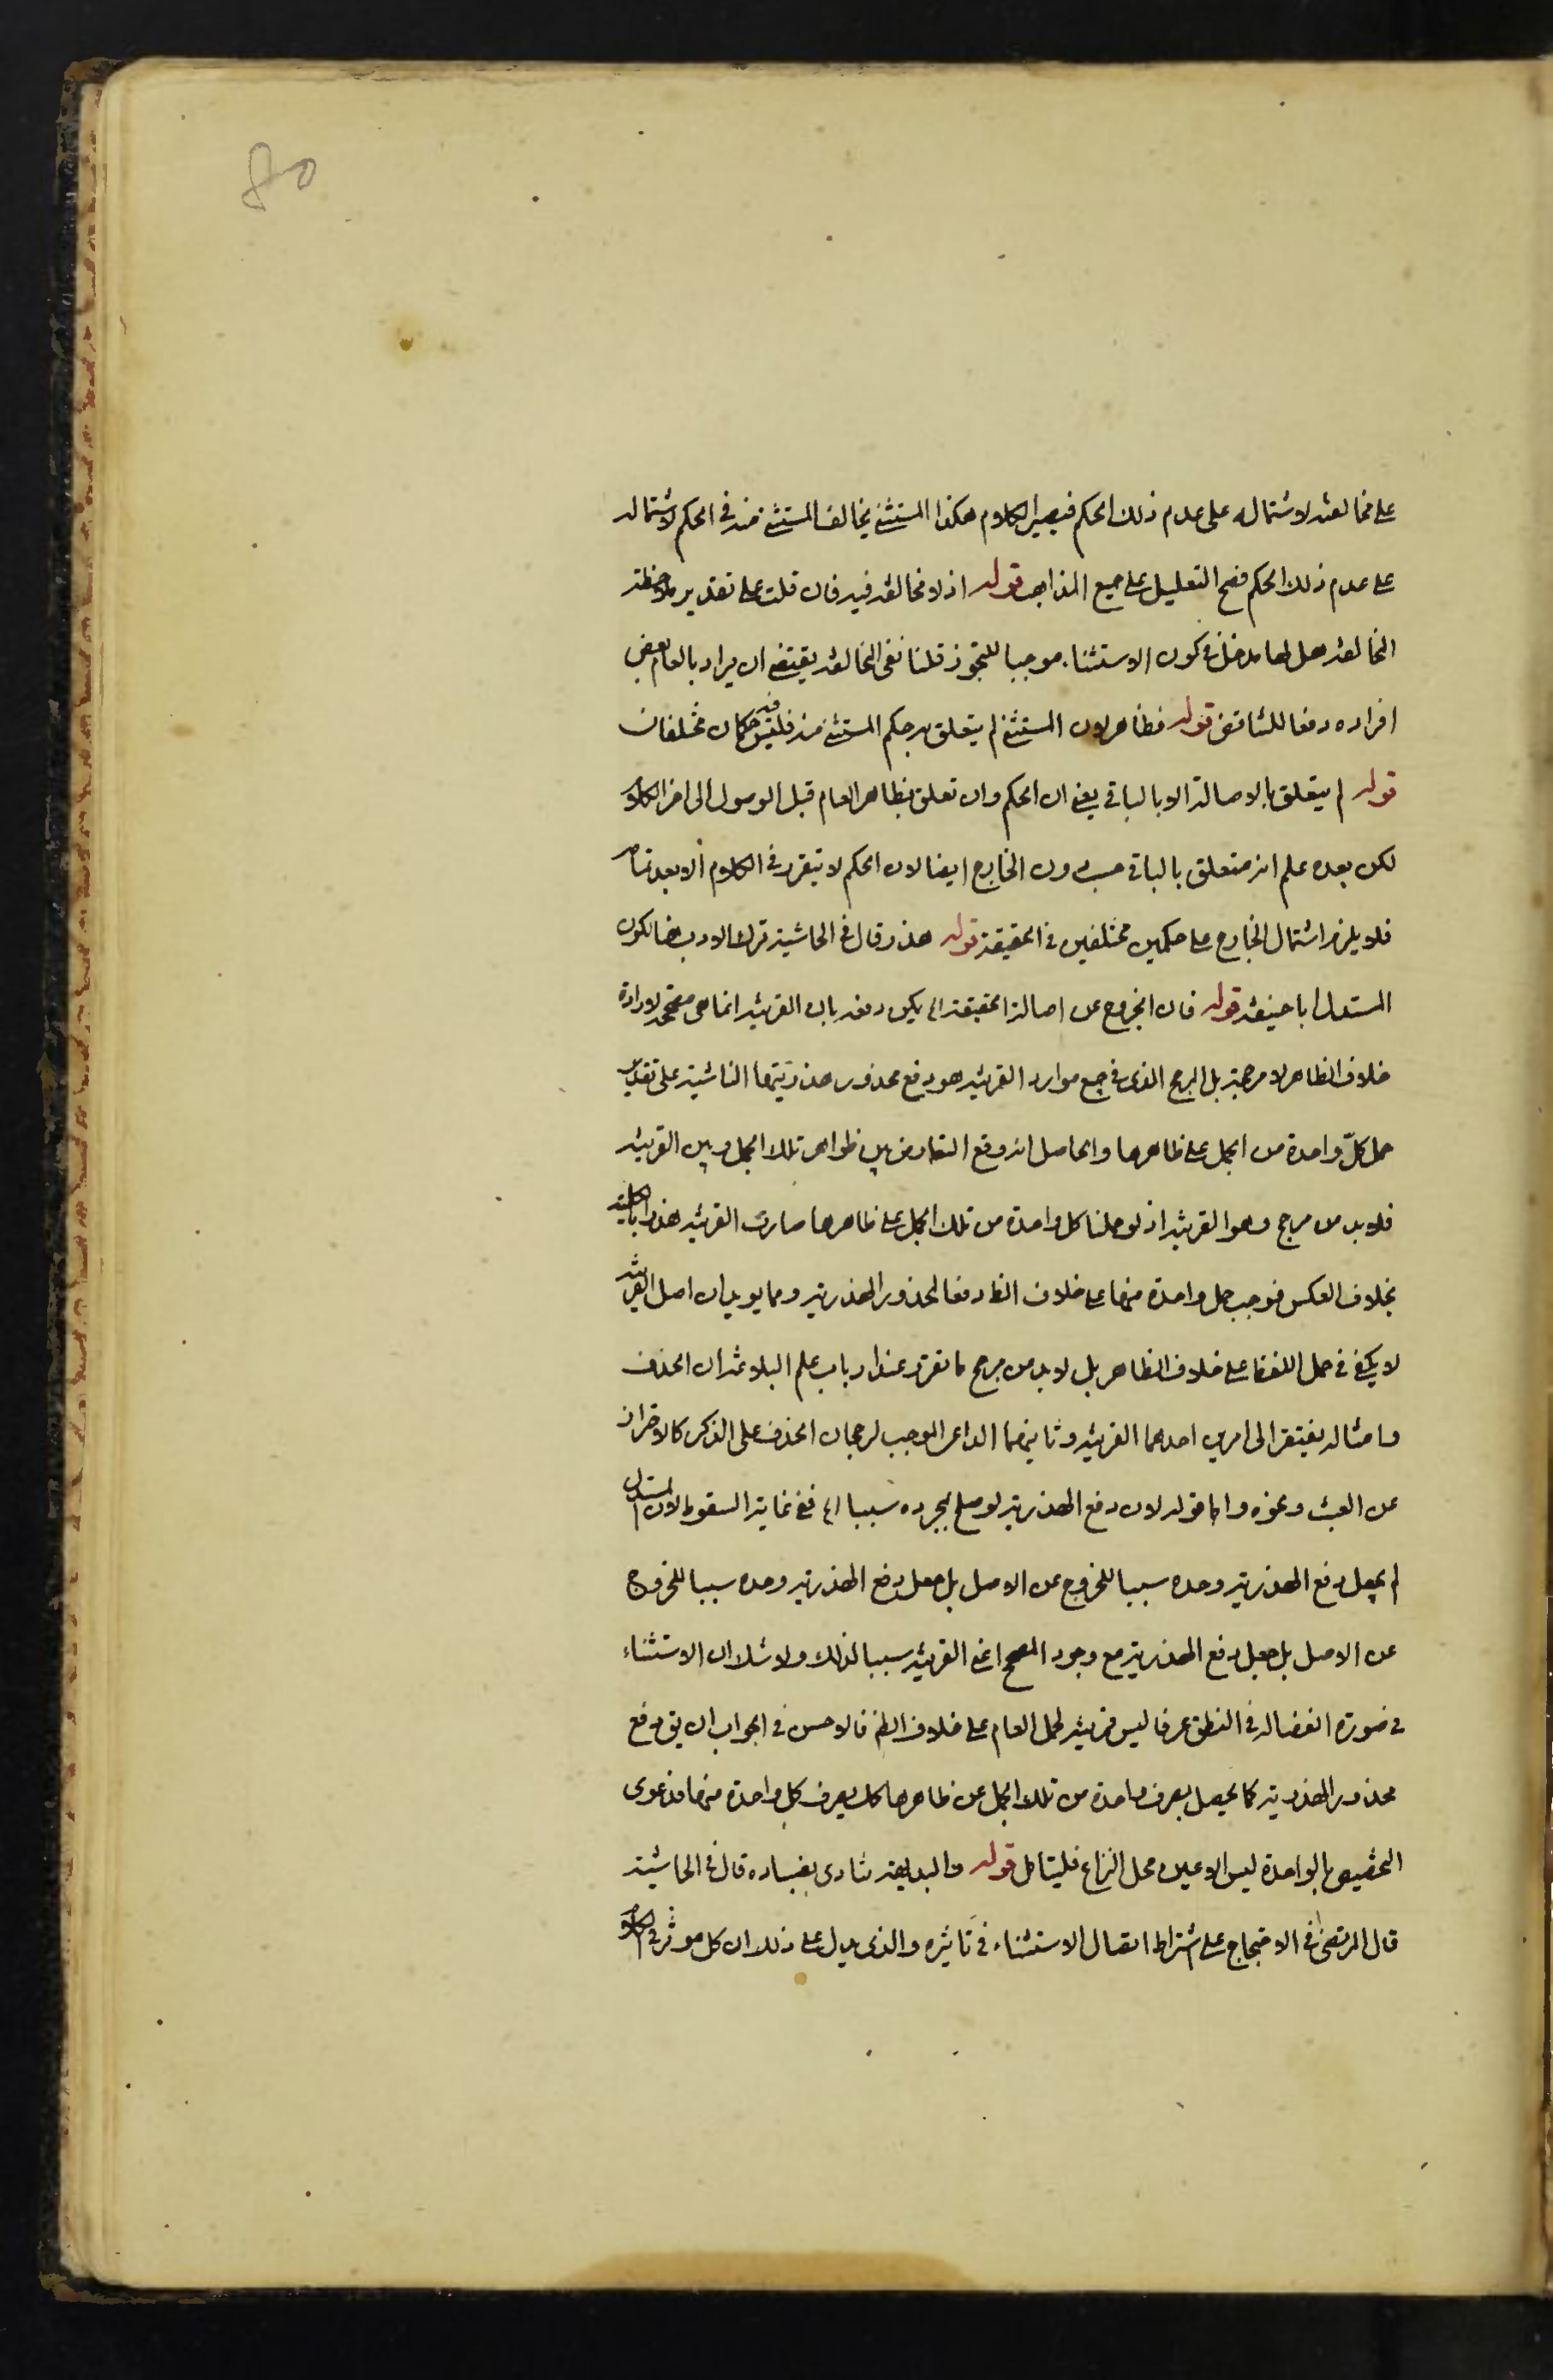 80
على مخالفته لاشتماله على عدم ذلك الحكم فيصير الكلام هكذا المستثنى يخالف المستثنى منه في الحكم لاشتماله
على عدم ذلك الحكم فصح التعليل على جميع المذاهب قوله اذ لا مخالفة فيه فان قلت على تقدير ملاحظة
المخالفة هل لها مدخل في كون الاستثناء موجبا للتجوز قلنا نفى المخالفة يقتضى ان يراد بالعام بعض
افراده دفعا للتناقض قوله فظاهر لان المستثنى لم يتعلق به حكم المستثنى منه فليس فيه حكمان مختلفان
قوله لم يتعلق بالاصالة الا بالباقى يعنى ان الحكم وان تعلق بظاهر العام قبل الوصول الى اخر الكلام
لكن بعده علم انه متعلق بالباقى دون الخارج ايضا لان الحكم لا يتقرر في الكلام الا بعد تمامه
فلا يلزم اشتمال الخارج على حكمين مختلفين في الحقيقة قوله هذر قال في الحاشية ترك الادب هنا لكون
المستدل ابا حنيفة قوله فان الخروج عن اصالة الحقيقة الخ يمكن دفعه بان القرينة انما هى مصححة لارادة
خلاف الظاهر لا مرجحة بل المرجح الذى في جميع موارد القرينة هو دفع محذور هذريتها الناشية على تقدير
حمل كلّ واحدة من الجمل على ظاهرها والحاصل انه وقع التعارض بين ظواهر تلك الجمل وبين القرينة
فلابد من مرجح وهو القرينة اذ لو حملنا كل واحدة من تلك الجمل على ظاهرها صارت القرينة هذرا بالكلية
بخلاف العكس فوجب حمل واحدة منها على خلاف الظا دفعا لمحذور الهذرية ومما يؤيد ان اصل القرينة
لا يكفى في حمل اللفظ على خلاف الظاهر بل لابد من مرجح ما تقرر عند ارباب علم البلاغة ان الحذف
وامثاله يفتقر الى امرين احدهما القرينة وثانيهما الداعى الموجب لرجحان الحذف على الذكر كالاحتراز
عن العبث ونحوه واما قوله لان دفع الهذرية لو صلح بمجرده سببا الخ ففى غاية السقوط لان المستدل
لم يجعل دفع الهذرية وحده سببا للخروج عن الاصل بل جعل دفع الهذرية وحده سببا للخروج
عن الاصل بل جعل دفع الهذرية مع وجود المصحح اعنى القرينة سببا لذلك ولا شك ان الاستثناء
في صورة انفصاله في النطق عرفا ليس قرينة لحمل العام على خلاف الظ فالاحسن في الجواب ان يق دفع
محذور الهذرية كما يحصل بصرف واحدة من تلك الجمل عن ظاهرها كك بصرف كل واحدة منها فدعوى
التخصيص بالواحدة ليس الا عين محل النزاع فليتامل قوله والبديهة تنادى بفساده قال في الحاشية
قال المرتضى في الاحتجاج على اشتراط اتصال الاستثناء في تاثيره والذى يدل على ذلك ان كل مؤثر في الكلام